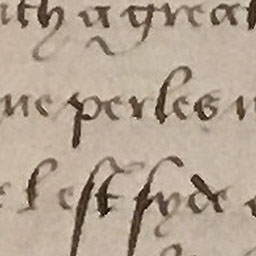 ith a great
ne perles
l est syde